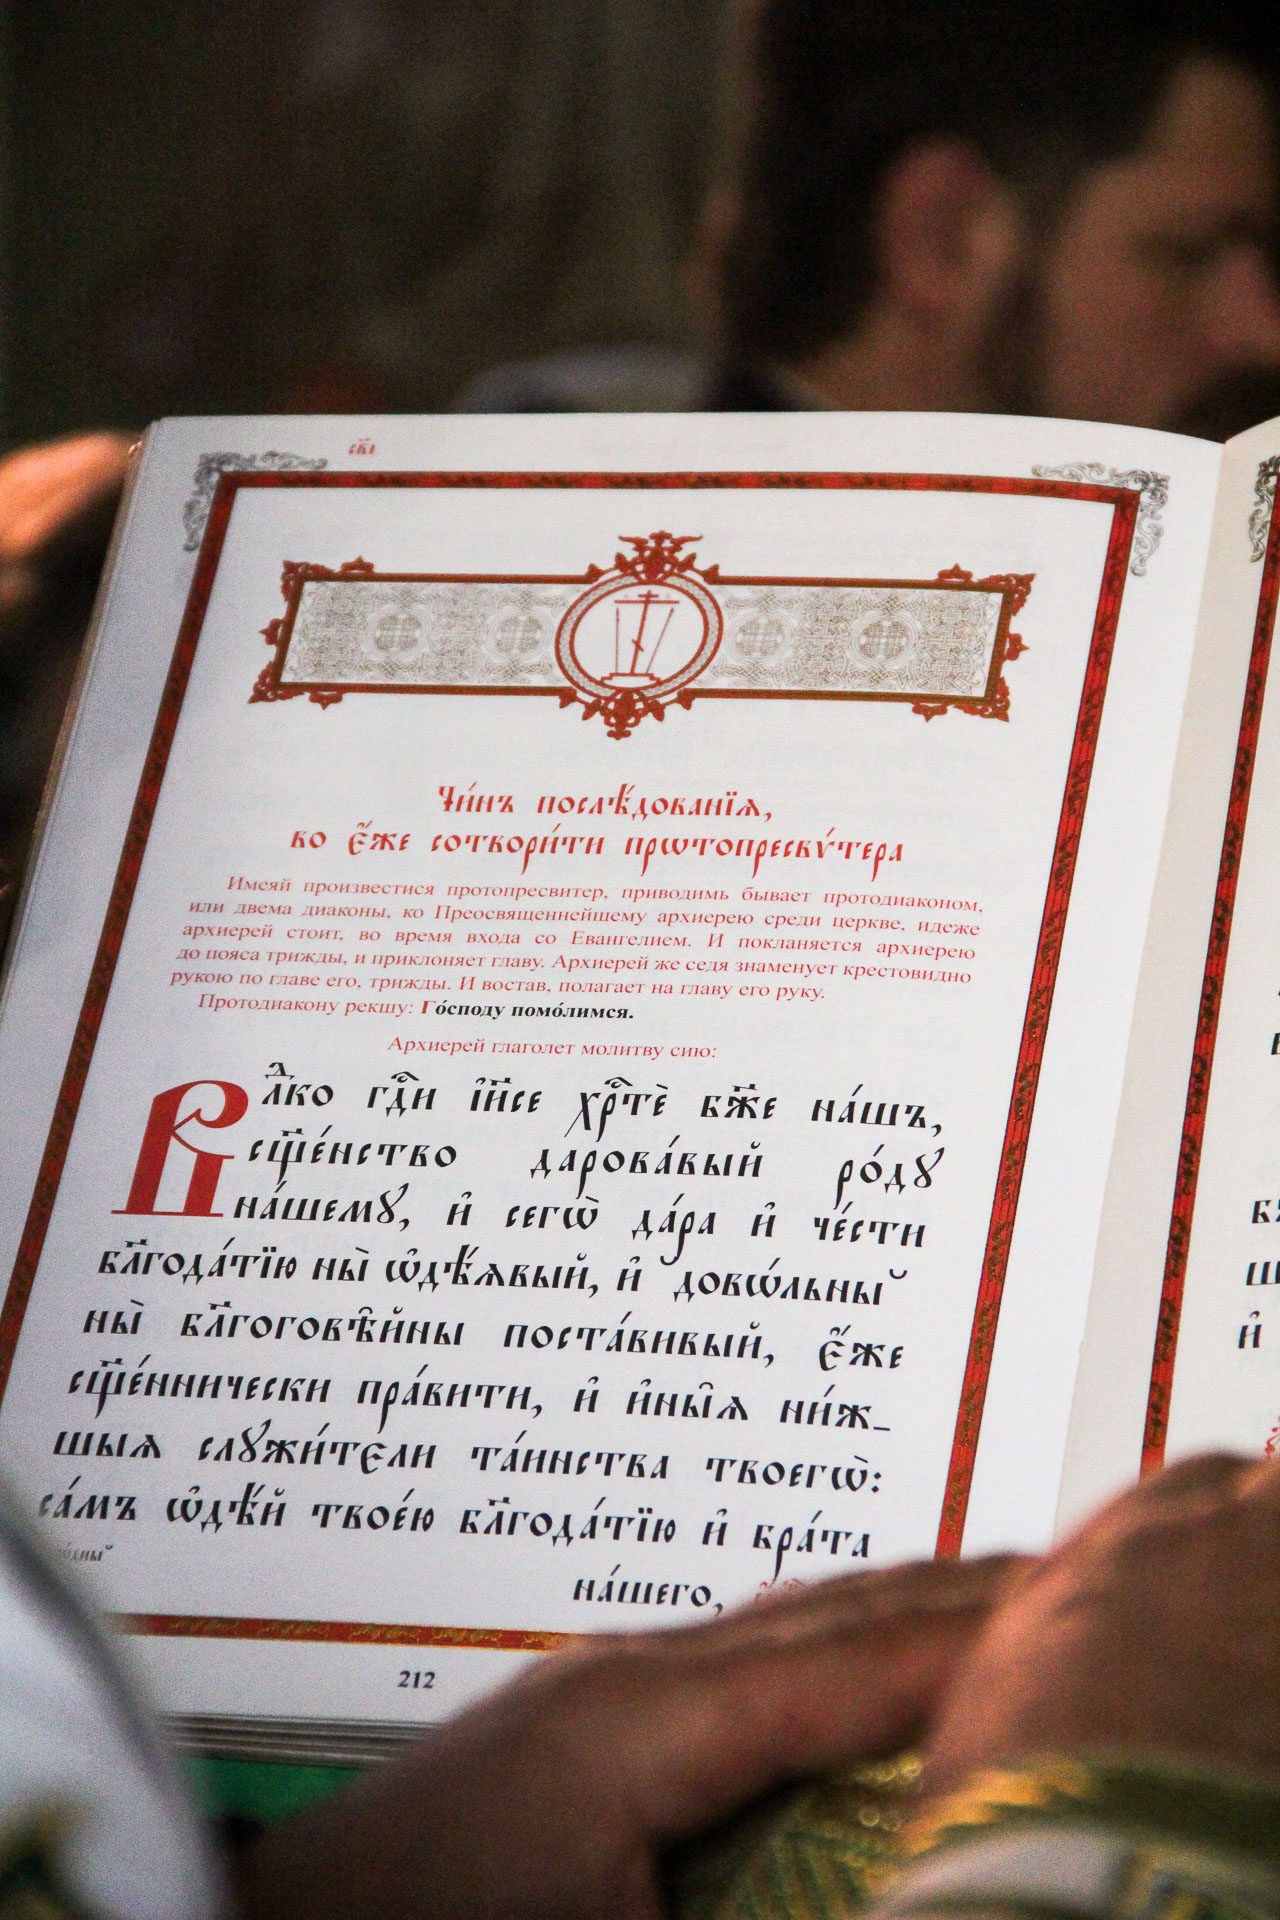 Чи́нъ послѣ́дованїѧ,
во є҆́же сотвори́ти прѡтопресвѵ́тера
Имеяй произвестися протопресвитер, приводимь бывает протодиаконом,
или двема диаконы, ко Преосвященнейшему архиерею среди церкве, идеже
архиерей стоит, во время входа со Евангелием. И покланяется архиерею
до пояса трижды, и приклоняет главу. Архиерей же седя знаменует крестовидно
рукою по главе его, трижды. И востав, полагает на главу его руку.
Протодиакону рекшу: Го́споду помо́лимся.
Архиерей глаголет молитву сию:
Влⷣко гдⷭ҇и і҆и҃се хрⷭ҇тѐ бж҃е на́шъ,
сщ҃е́нство дарова́вый ро́дꙋ
на́шемꙋ, и҆ сегѡ̀ да́ра и҆ че́сти
бл҃года́тїю ны̀ ѡ҆дѣ́ѧвый, и҆ ̆довѡ́льны ̆
ны̀ бл҃гоговѣ̑йны поста́вивый, є҆́же
сщ҃е́ннически пра́вити, и҆ и҆ны̑ѧ ни́ж_
шыѧ слꙋжи́тєли та́инства твоегѡ̀:
са́мъ ѡ҆дѣ́й твое́ю бл҃года́тїю и҆ бра́та
на́шего,
212